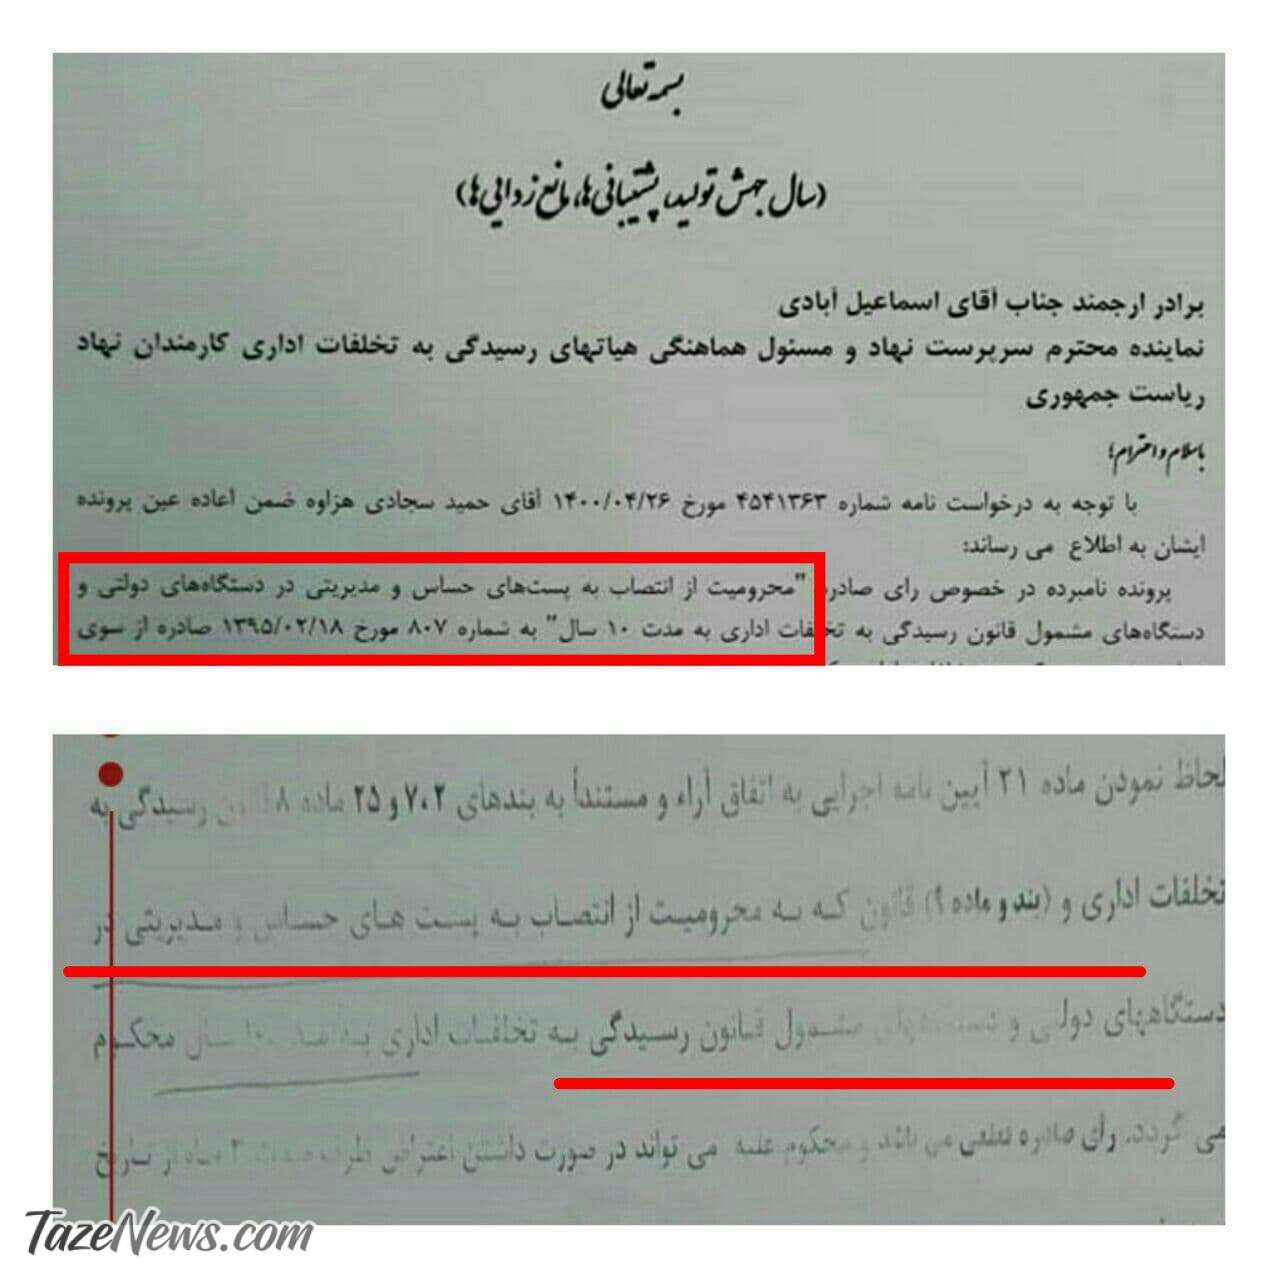 بسمه تعالی
(سال جهش تولید، پشتیبانی‌ها، مانع زدایی‌ها)
برادر ارجمند جناب آقای اسماعیل آبادی
نماینده محترم سرپرست نهاد و مسئول هماهنگی هیاتهای رسیدگی به تخلفات اداری کارمندان نهاد
ریاست جمهوری
باسلام و احترام؛
با توجه به درخواست نامه شماره ۴۵۴۱۳۶۳ مورخ ۱۴۰۰/۰۴/۲۶ آقای حمید سجادی هزاوه ضمن اعاده عین پرونده
ایشان به اطلاع می رساند:
پرونده نامبرده در خصوص رای صادره "محرومیت از انتصاب به پست‌های حساس و مدیریتی در دستگاه‌های دولتی و
دستگاه‌های مشمول قانون رسیدگی به تخلفات اداری به مدت ۱۰ سال" به شماره ۸۰۷ مورخ ۱۳۹۵/۰۲/۱۸ صادره از سوی
لحاظ نمودن ماده ۲۱ آیین نامه اجرایی به اتفاق آراء و مستنداً به بندهای ۷،۲ و ۲۵ ماده ۸ قانون رسیدگی به
تخلفات اداری و (بند و ماده ۹) قانون که به محرومیت از انتصاب به پست های حساس و مدیریتی در
دستگاههای دولتی و دستگاههای مشمول قانون رسیدگی به تخلفات اداری به مدت ۱۰ سال محکوم
می گردد. رأی صادره قطعی می باشد و محکوم علیه می تواند در صورت داشتن اعتراض ظرف مدت ۳ ماه از تاریخ
TazeNews.com